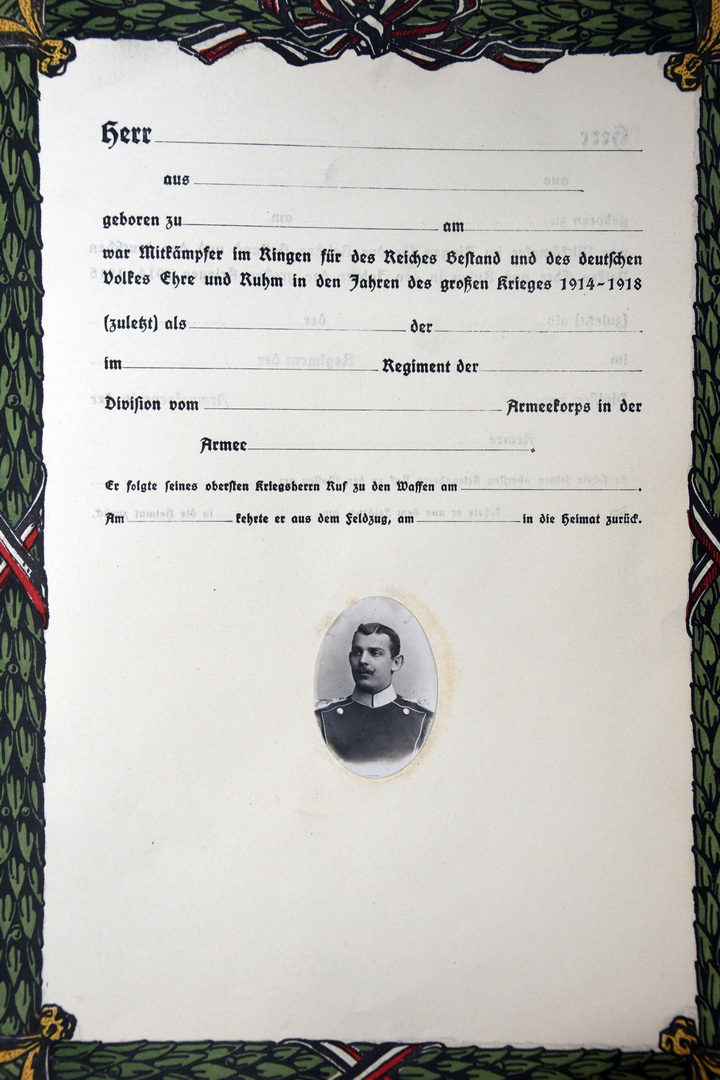 Herr
aus
geboren zu am
war Mitkämpfer im Ringen für des Reiches Bestand und des deutschen
Volkes Ehre und Ruhm in den Jahren des großen Krieges 1914-1918
(zuletzt) als der
im Regiment der
Division vom Armeekorps in der
Armee .
Er folgte seines obersten Kriegsherrn Ruf zu den Waffen am .
Am kehrte er aus dem Feldzug, am in die Heimat zurück.